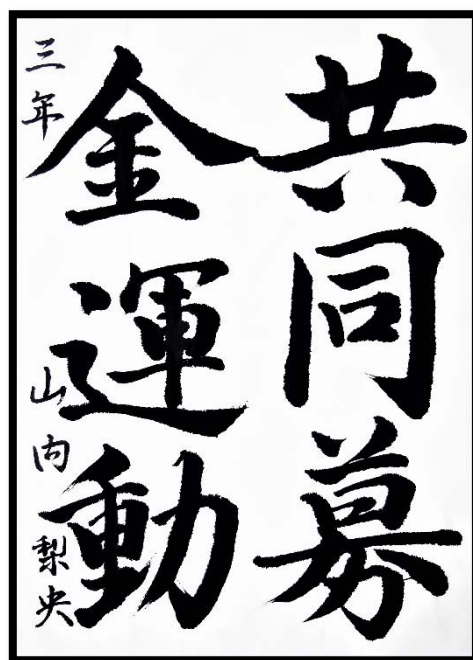 共同募
金運動
三年 山内梨央